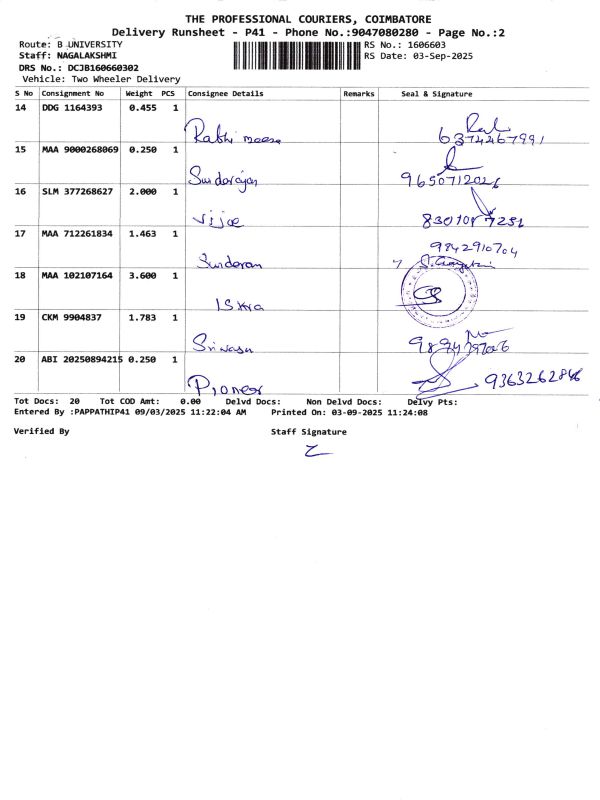 THE PROFESSIONAL COURIERS, COIMBATORE
Delivery Runsheet - P41 - Phone No.:9047080280 - Page No.:2
Route: B UNIVERSITY RS No.: 1606603
Staff: NAGALAKSHMI RS Date: 03-Sep-2025
DRS No.: DCJB160660302
Vehicle: Two Wheeler Delivery
S No Consignment No Weight PCS Consignee Details Remarks Seal & Signature
14 DDG 1164393 0.455 1
6374267991
15 MAA 9000268069 0.250 1
Sundarajan
16 SLM 377268627 2.000 1
Vijae
17 MAA 712261834 1.463 1 9842910704
Sundaran
18 MAA 102107164 3.600 1
19 CKM 9904837 1.783 1
20 ABI 20250894215 0.250 1
Pioneer 9363262846
Tot Docs: 20 Tot COD Amt: 0.00 Delvd Docs: Non Delvd Docs: Delvy Pts:
Entered By :PAPPATHIP41 09/03/2025 11:22:04 AM Printed On: 03-09-2025 11:24:08
Verified By Staff Signature